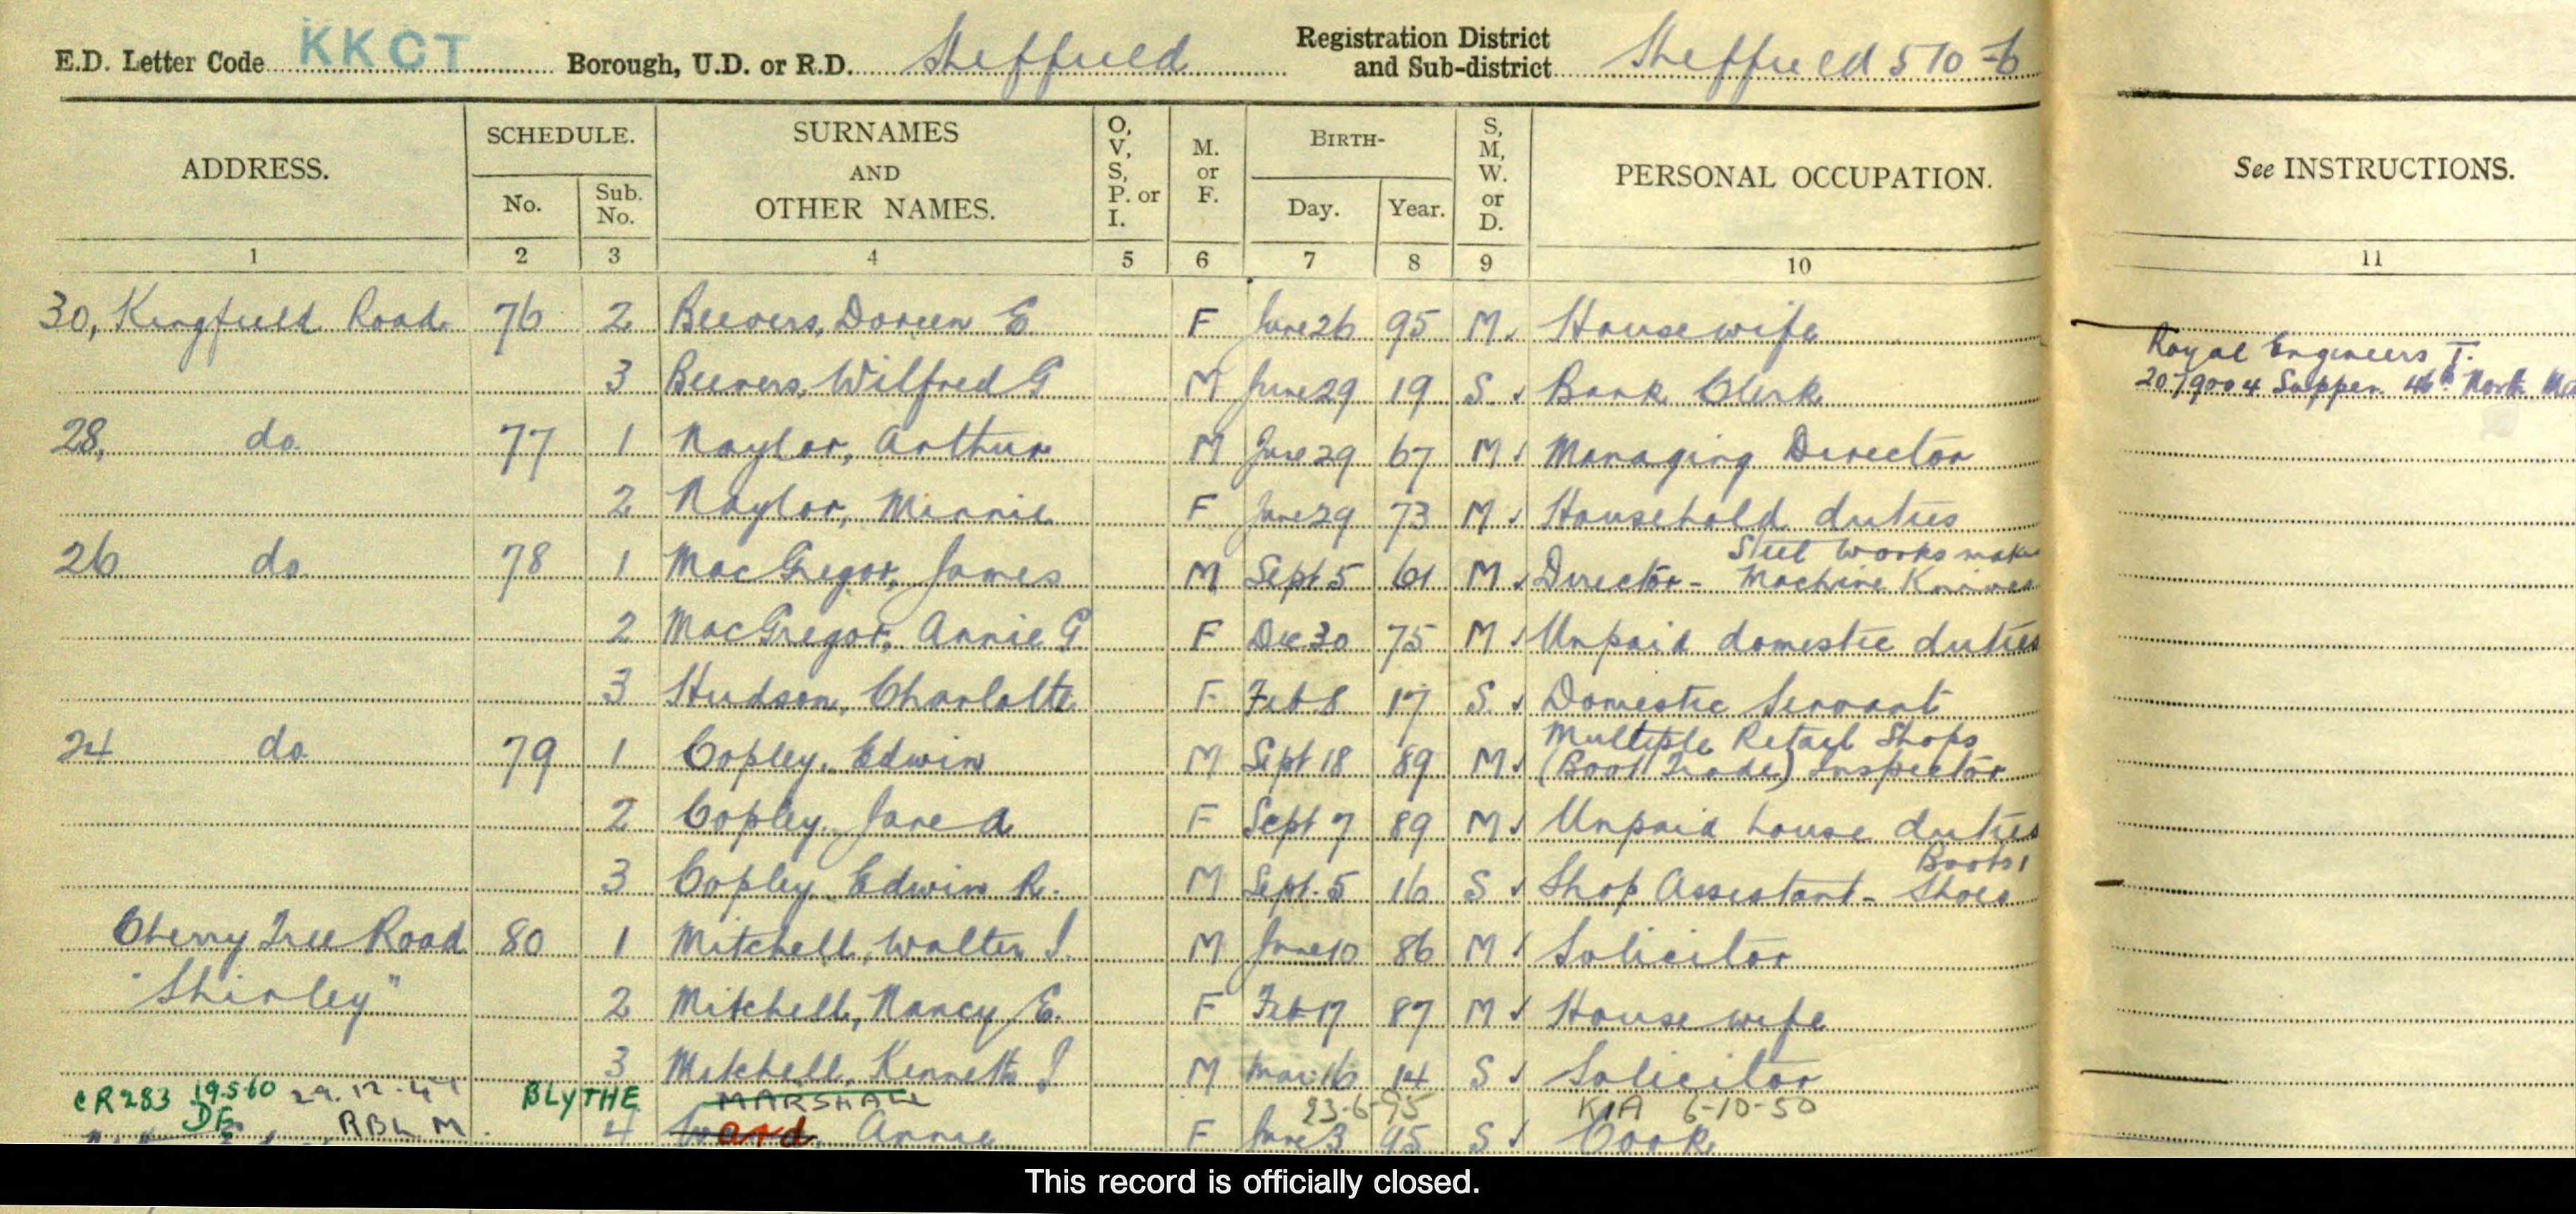 E.D. Letter Code KKCT Borough, U.D. or R.D. Sheffield Registration District and Sub-district Sheffield 510-6
ADDRESS. SCHEDULE. No. Sub. No. SURNAMES AND OTHER NAMES. O, V, S, P. or I. M. or F. BIRTH- Day. Year. S, M, W. or D. PERSONAL OCCUPATION. See INSTRUCTIONS.
1 2 3 4 5 6 7 8 9 10 11
30, Kingfield Road 76 2 Beevers, Doreen E F June 26 95 M Housewife
Royal Engineers T.
3 Beevers, Wilfred G M June 29 19 S Bank Clerk 2079004 Sapper 46th North
28, do 77 1 Naylor, Arthur M June 29 67 M Managing Director
2 Naylor, Minnie F June 29 73 M Household duties
Steel Works make
26 do 78 1 MacGregor, James M Sept 5 61 M Director - Machine Knives
2 MacGregor, Annie G F Dec 30 75 M Unpaid domestic duties
3 Hudson, Charlotte F Feb 8 17 S Domestic Servant
Multiple Retail Shops
24 do 79 1 Copley, Edwin M Sept 18 89 M (Boot Trade) Inspector
2 Copley, Jane A F Sept 7 89 M Unpaid house duties
Boots
3 Copley Edwin R. M Sept. 5 16 S Shop Assistant - Shoes
Cherry Tree Road 80 1 Mitchell, Walter J. M June 10 86 M Solicitor
"Shirley" 2 Mitchell, Nancy E. F Feb 17 87 M Housewife
3 Mitchell, Kenneth J M Mar 16 14 S Solicitor
CR283 19.5.60 29.12.41 BLYTHE MARSHALL 23-6-95 6-10-50
DE RBL M. 4 Ward, Annie F June 3 95 S Cook
This record is officially closed.